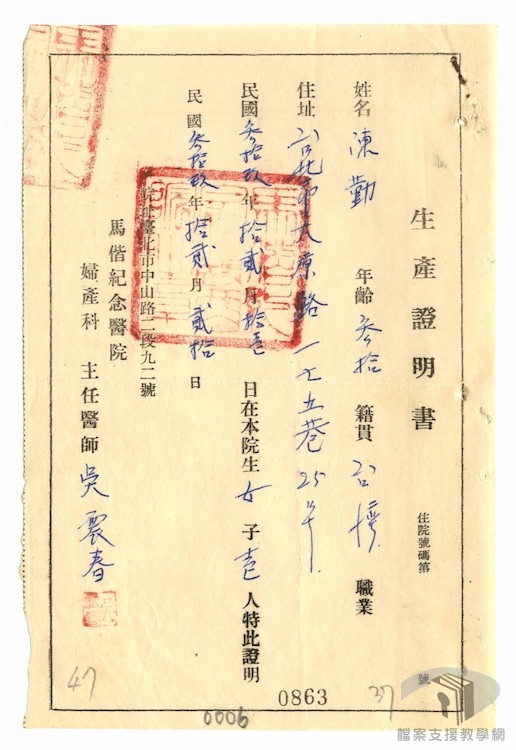 生產證明書 住院號碼第 號
姓名 陳勤 年齡 叁拾 籍貫 台灣 職業
住址 台北市大原路一七五巷25号
民國叁拾玖年拾貳月拾壹日在本院生女子壹人特此證明
民國叁拾玖年拾貳月貳拾日
院址臺北市中山路二段九二號
馬偕紀念醫院
婦產科 主任醫師 吳震春
47
0863
37
0006
檔案支援教學網